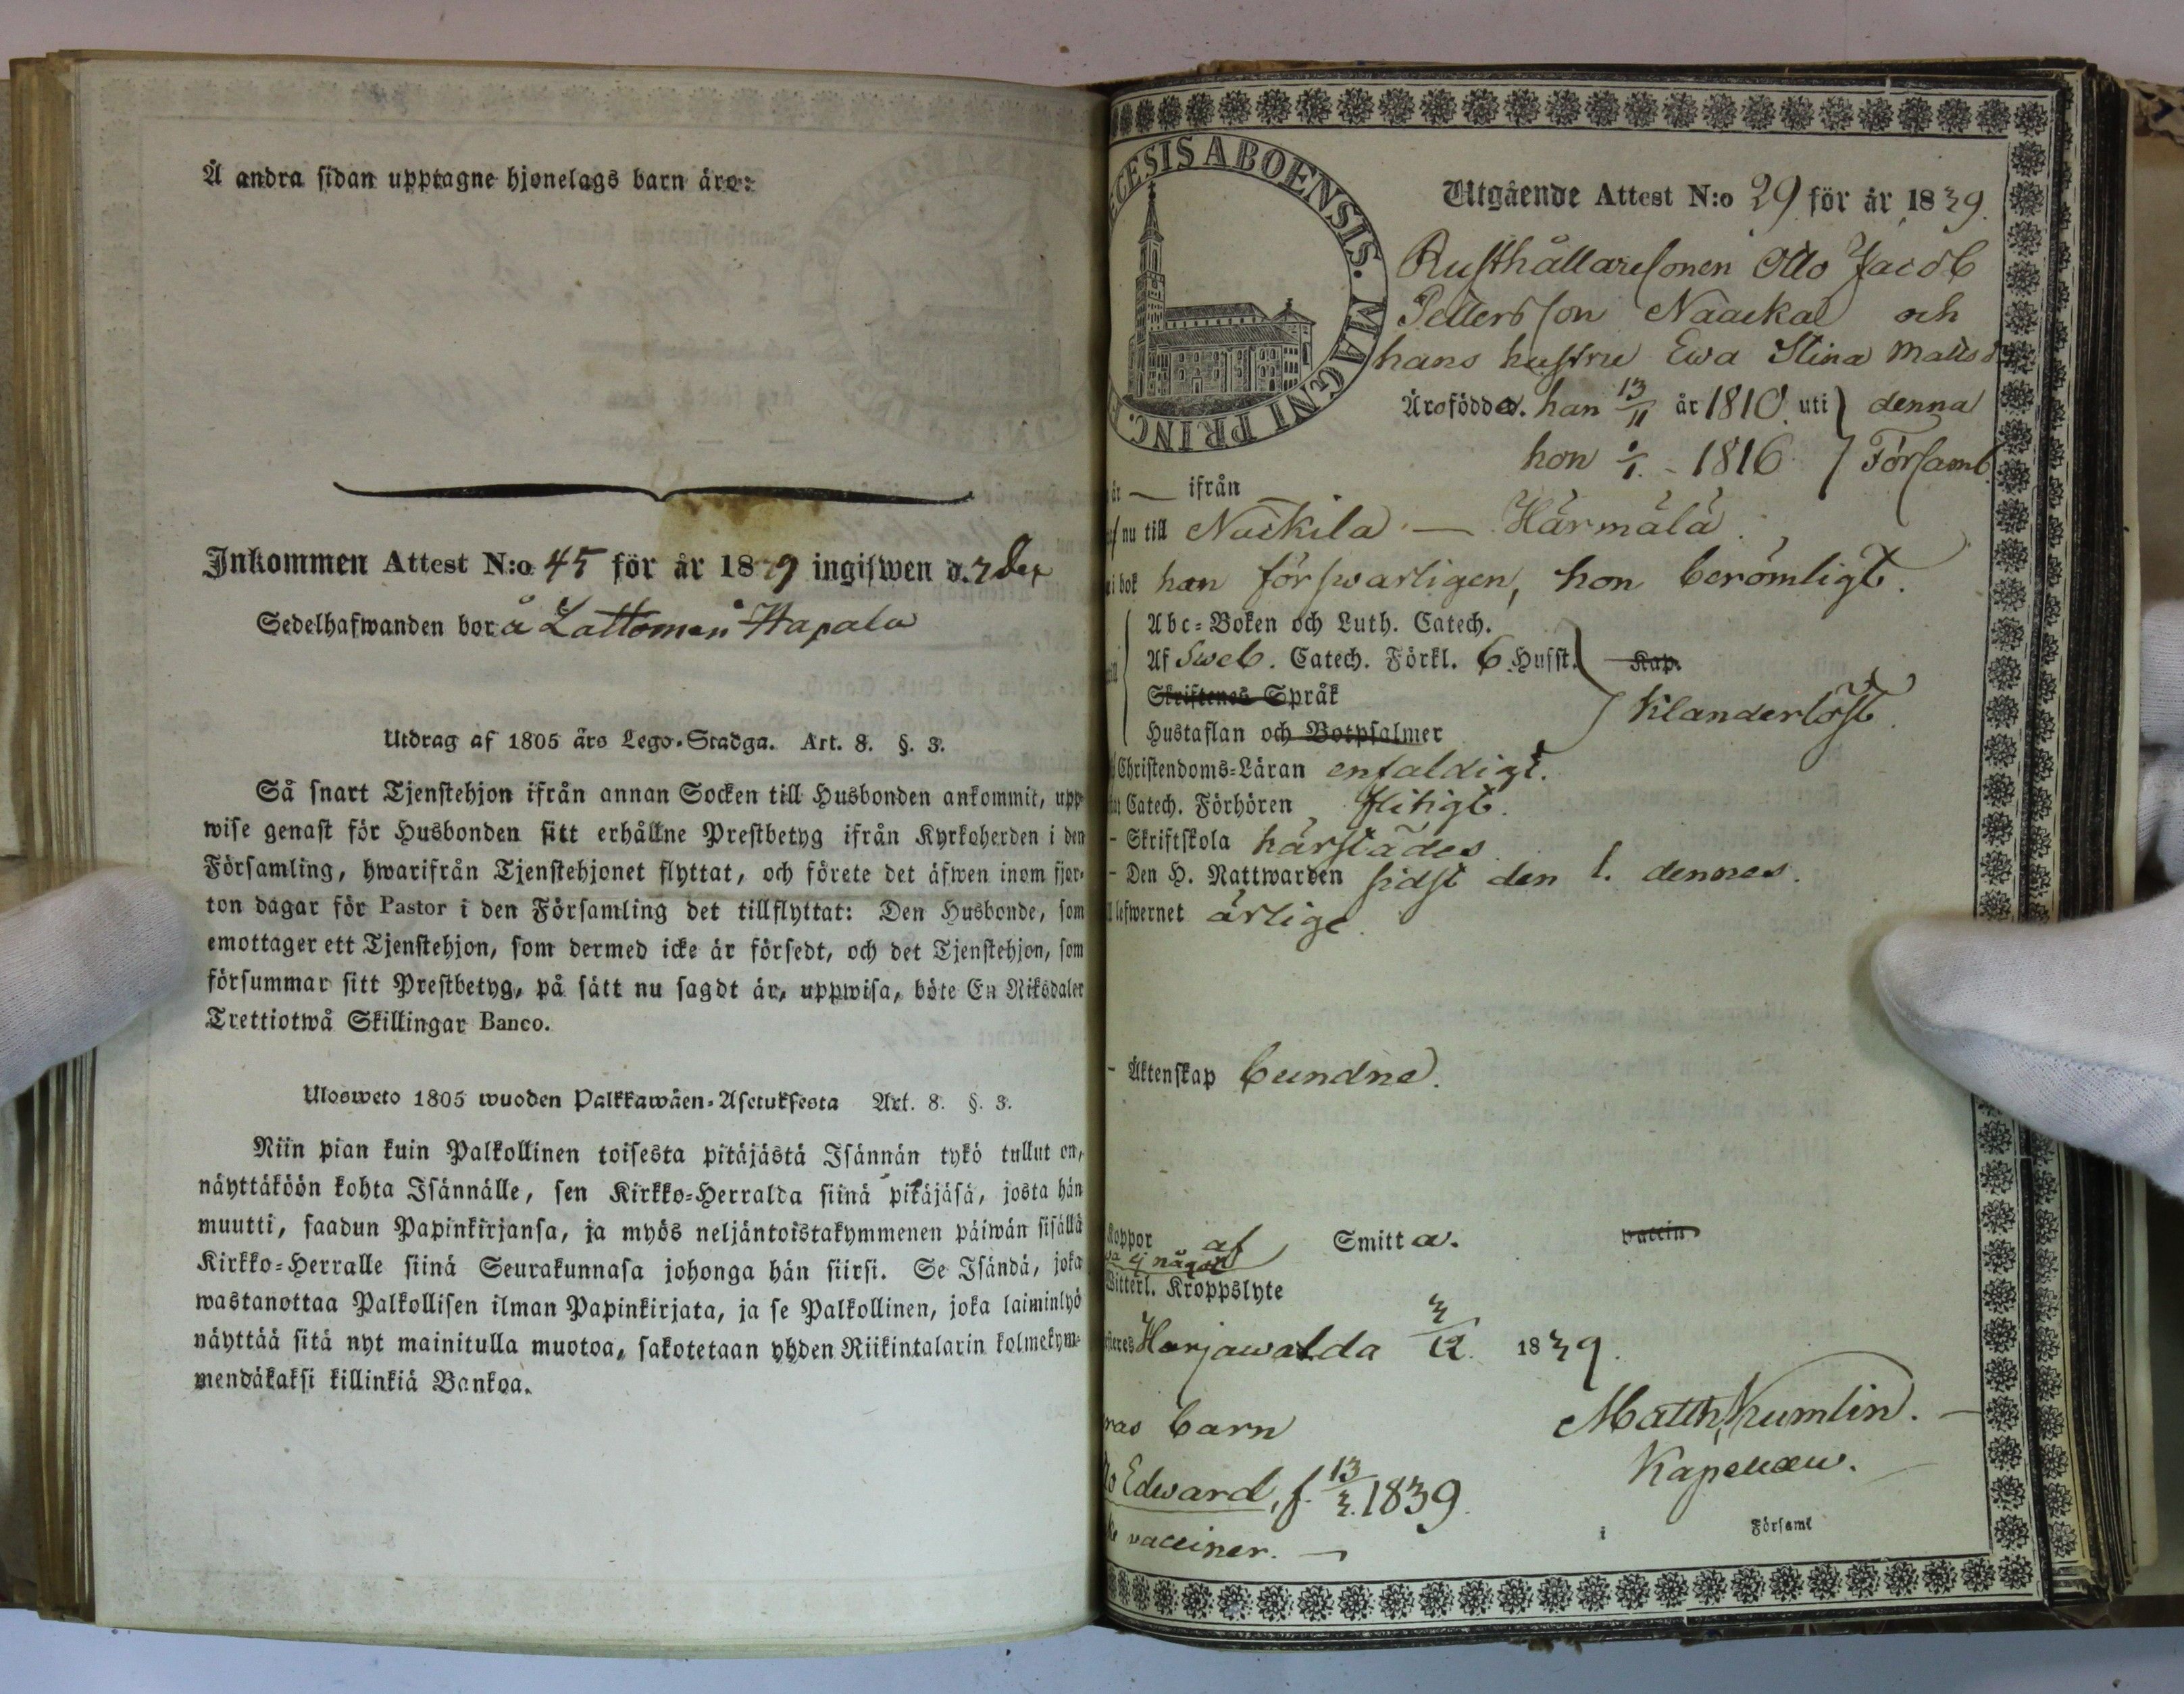 Å andra sidan upptagne hjonelags barn äro:
Inkommen Attest N:o 45 för år 1839 ingifwen d.
Sedelhafwanden bor å Lattomeri Hapala
Utdrag af 1805 års Lego-Stadga. Art. 8. §. 3.
Så snart Tjenstehjon ifrån annan Socken till Husbonden ankommit, upp-
wise genast för Husbonden sitt erhållne Prestbetyg ifrån Kyrkoherden i den
Församling, hwarifrån Tjenstehjonet flyttat, och förete det äfwen inom fjor-
ton dagar för Pastor i den Församling det tillflyttat: Den Husbonde, som
emottager ett Tjenstehjon, som dermed icke är försedt, och det Tjenstehjon, som
försummar sitt Prestbetyg, på sätt nu sagdt är, uppwisa, böte En Riksdaler
Trettiotwå Skillingar Banco.
Ulosweto 1805 wuoden Palkkawäen-Asetuksesta Art. 8. §. 3.
Niin pian kuin Palkollinen toisesta pitäjästä Isännän tykö tullut on,
näyttäköön kohta Isännälle, sen Kirkko-Herralda siinä pitäjäsä, josta hän
muutti, saadun Papinkirjansa, ja myös neljäntoistakymmenen päiwän sisällä
Kirkko-Herralle siinä Seurakunnasa johonga hän siirsi. Se Isändä, joka
wastanottaa Palkollisen ilman Papinkirjata, ja se Palkollinen, joka laiminlyö
näyttää sitä nyt mainitulla muotoa, sakotetaan yhden Riikintalarin kolmekym-
mendäkaksi killinkiä Bankoa.
ECESIS ABOENSIS. MAGNI PRINC. F
Utgående Attest N:o 29 för år 1839.
Rusthållaresonen Otto Jacob
Pettersson Naacka och
hans hustru Ewa Stina Mattsd
Äro födde. han 13/11 år 1810. uti denna
hon 1816 Församl.
år — ifrån
nu till Nackila — Härmälä.
i bok han förswarligen, hon berömligt.
Abc-Boken och Luth. Catech.
Af Sweb. Catech. Förkl. 6 Husst. Kap.
Skriftenes Språk
Klanderlöst.
Hustaflan och Botpsalmer
Christendoms-Läran enfaldigt.
Catech. Förhören flitigt.
- Skriftskola härstädes.
- Den H. Nattwarden sidst den 1. dennes.
lefwernet ärlige.
- Äktenskap bundne.
Koppor af Smitta. vaccin
ej något
Witterl. Kroppslyte
Harjawalda 3/12 1839.
ras barn
Matth, Kumlin.
Kapellan.
Edward, f. 13/3. 1839.
vacciner. —
i Församl